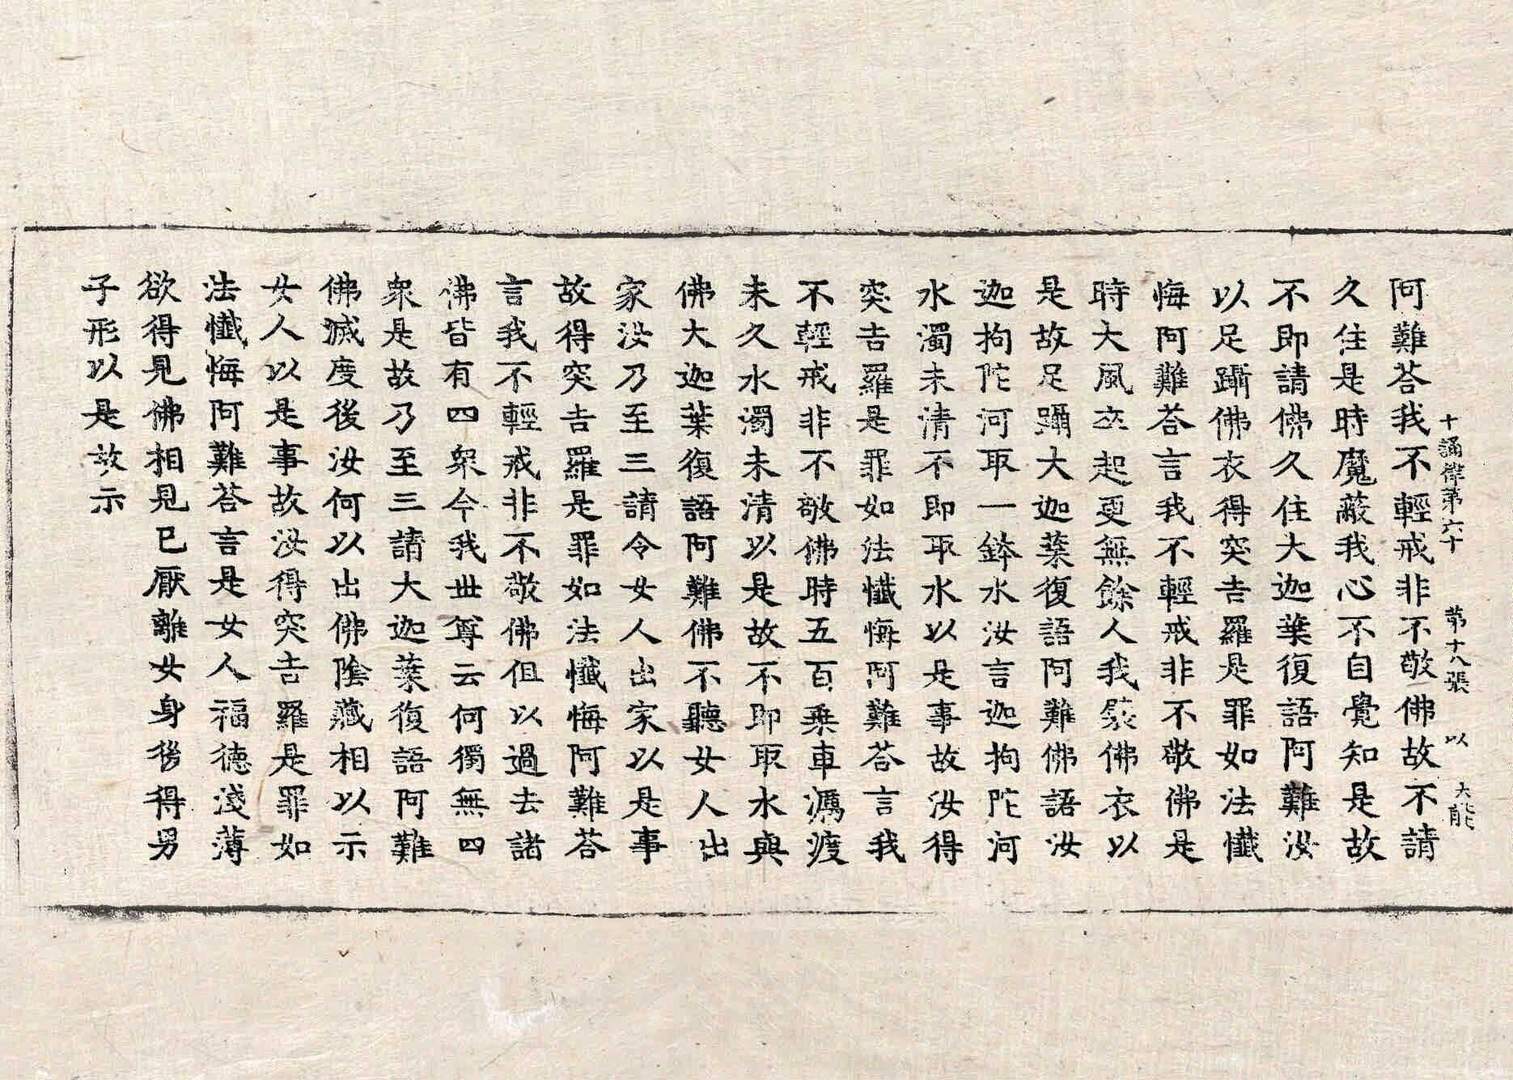 十誦律第六十 第十八張 以 大能
阿難荅我不輕戒非不敬佛故不請
久住是時魔蔽我心不自覺知是故
不即請佛久住大迦葉復語阿難汝
以足躡佛衣得突吉羅是罪如法懺
悔阿難荅言我不輕戒非不敬佛是
時大風卒起更無餘人我襞佛衣以
是故足躡大迦葉復語阿難佛語汝
迦拘陀河取一鉢水汝言迦拘陀河
水濁未清不即取水以是事故汝得
突吉羅是罪如法懺悔阿難荅言我
不輕戒非不敬佛時五百乗車濿渡
未久水濁未清以是故不即取水與
佛大迦葉復語阿難佛不聽女人出
家汝乃至三請令女人出家以是事
故得突吉羅是罪如法懺悔阿難荅
言我不輕戒非不敬佛但以過去諸
佛皆有四衆今我世尊云何獨無四
衆是故乃至三請大迦葉復語阿難
佛滅度後汝何以出佛陰藏相以示
女人以是事故汝得突吉羅是罪如
法懺悔阿難荅言是女人福德淺薄
欲得見佛相見已厭離女身後得男
子形以是故示